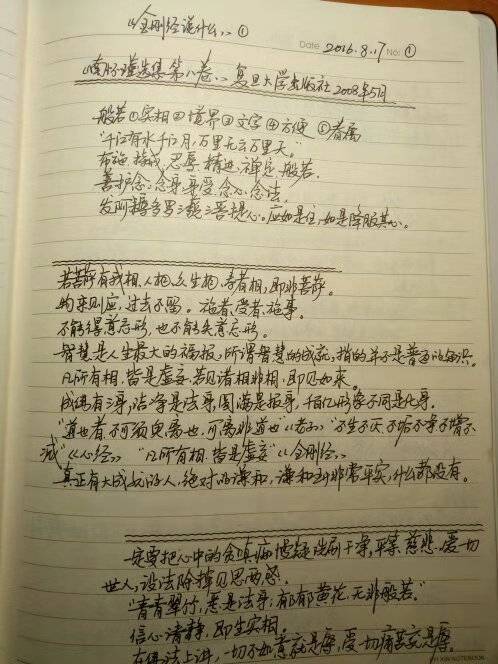 《金刚经说什么》①
Date 2016.8.17 No: ①
《南怀瑾选集第八卷》复旦大学出版社 2008年5月
般若①实相②境界③文字④方便⑤眷属
"千江有水千江月,万里无云万里天。"
布施 持戒 忍辱 精进 禅定 般若.
善护念:念身,身受,念心,念法.
发阿耨多罗三藐三菩提心。应如是住,如是降服其心。
若菩萨有我相、人相、众生相、寿者相,即非菩萨。
物来则应,过去不留。施者,受者,施事。
不能得意忘形,也不能失意忘形。
智慧是人生最大的福报,所谓智慧的成就,指的并不是普通的知识。
凡所有相,皆是虚妄.若见诸相非相,即见如来。
成佛有三身,清净是法身,圆满是报身,千百亿形象不同是化身。
"道也者,不可须臾离也,可离非道也"《老子》"不生不灭,不垢不净不增不
减"《心经》"凡所有相,皆是虚妄"《金刚经》
真正有大成就的人,绝对的谦和,谦和到非常平实,什么都没有。
一定要把心中的贪嗔痴慢疑洗刷干净,平等,慈悲,爱一切
世人,设法除掉见思两惑.
"青青翠竹,悉是法身,郁郁黄花,无非般若."
信心清静,即生实相。
在佛法上讲,一切不如意就是魔,爱一切痛苦就是魔。